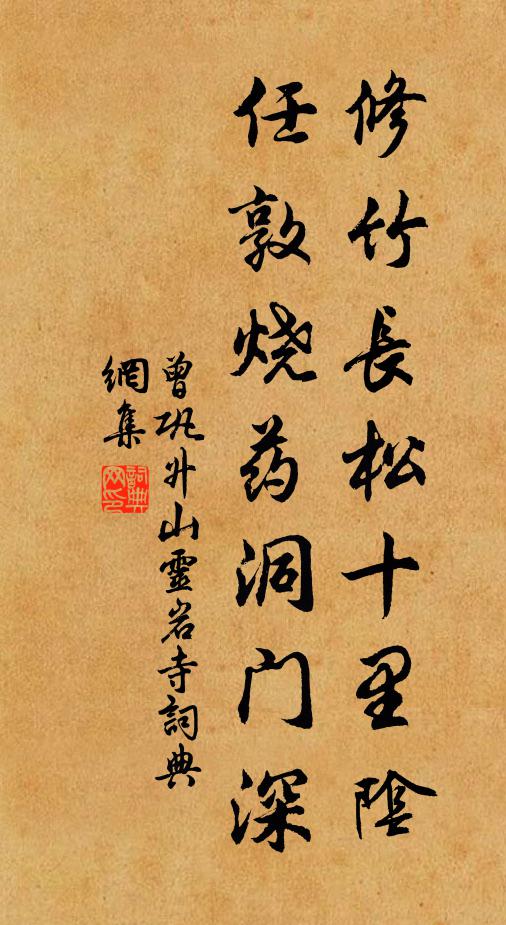 修竹長松十里陰
任敦烧药洞门深
曾巩升山靈岩寺詞典
網集
詞典
网印